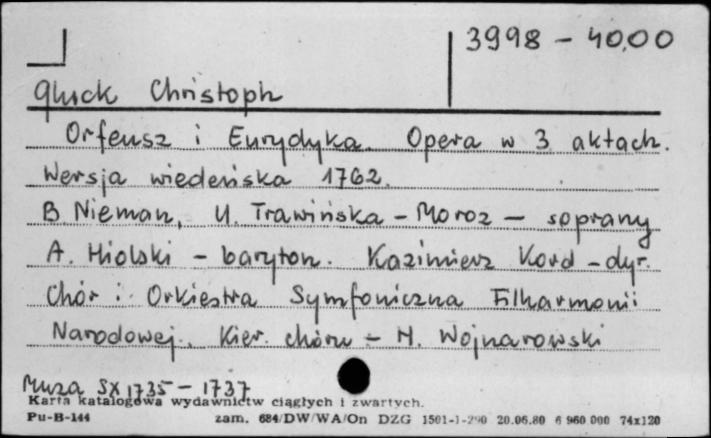 3998 - 4000
Gluck Christoph
Orfeusz i Eurydyka. Opera w 3 aktach.
Wersja wiedeńska 1762.
B. Nieman, U. Trawińska - Moroz - soprany
A. Hiolski - baryton. Kazimierz Kord - dyr.
Chór i Orkiestra Symfoniczna Filharmonii
Narodowej. Kier. chóru - H. Wojnarowski
Muza SX 1735 - 1737
Karta katalogowa wydawnictw ciągłych i zwartych.
Pu-B-144 zam. 684/DW/WA/On DZG 1501-1-290 20.06.80 6 960 000 74x120